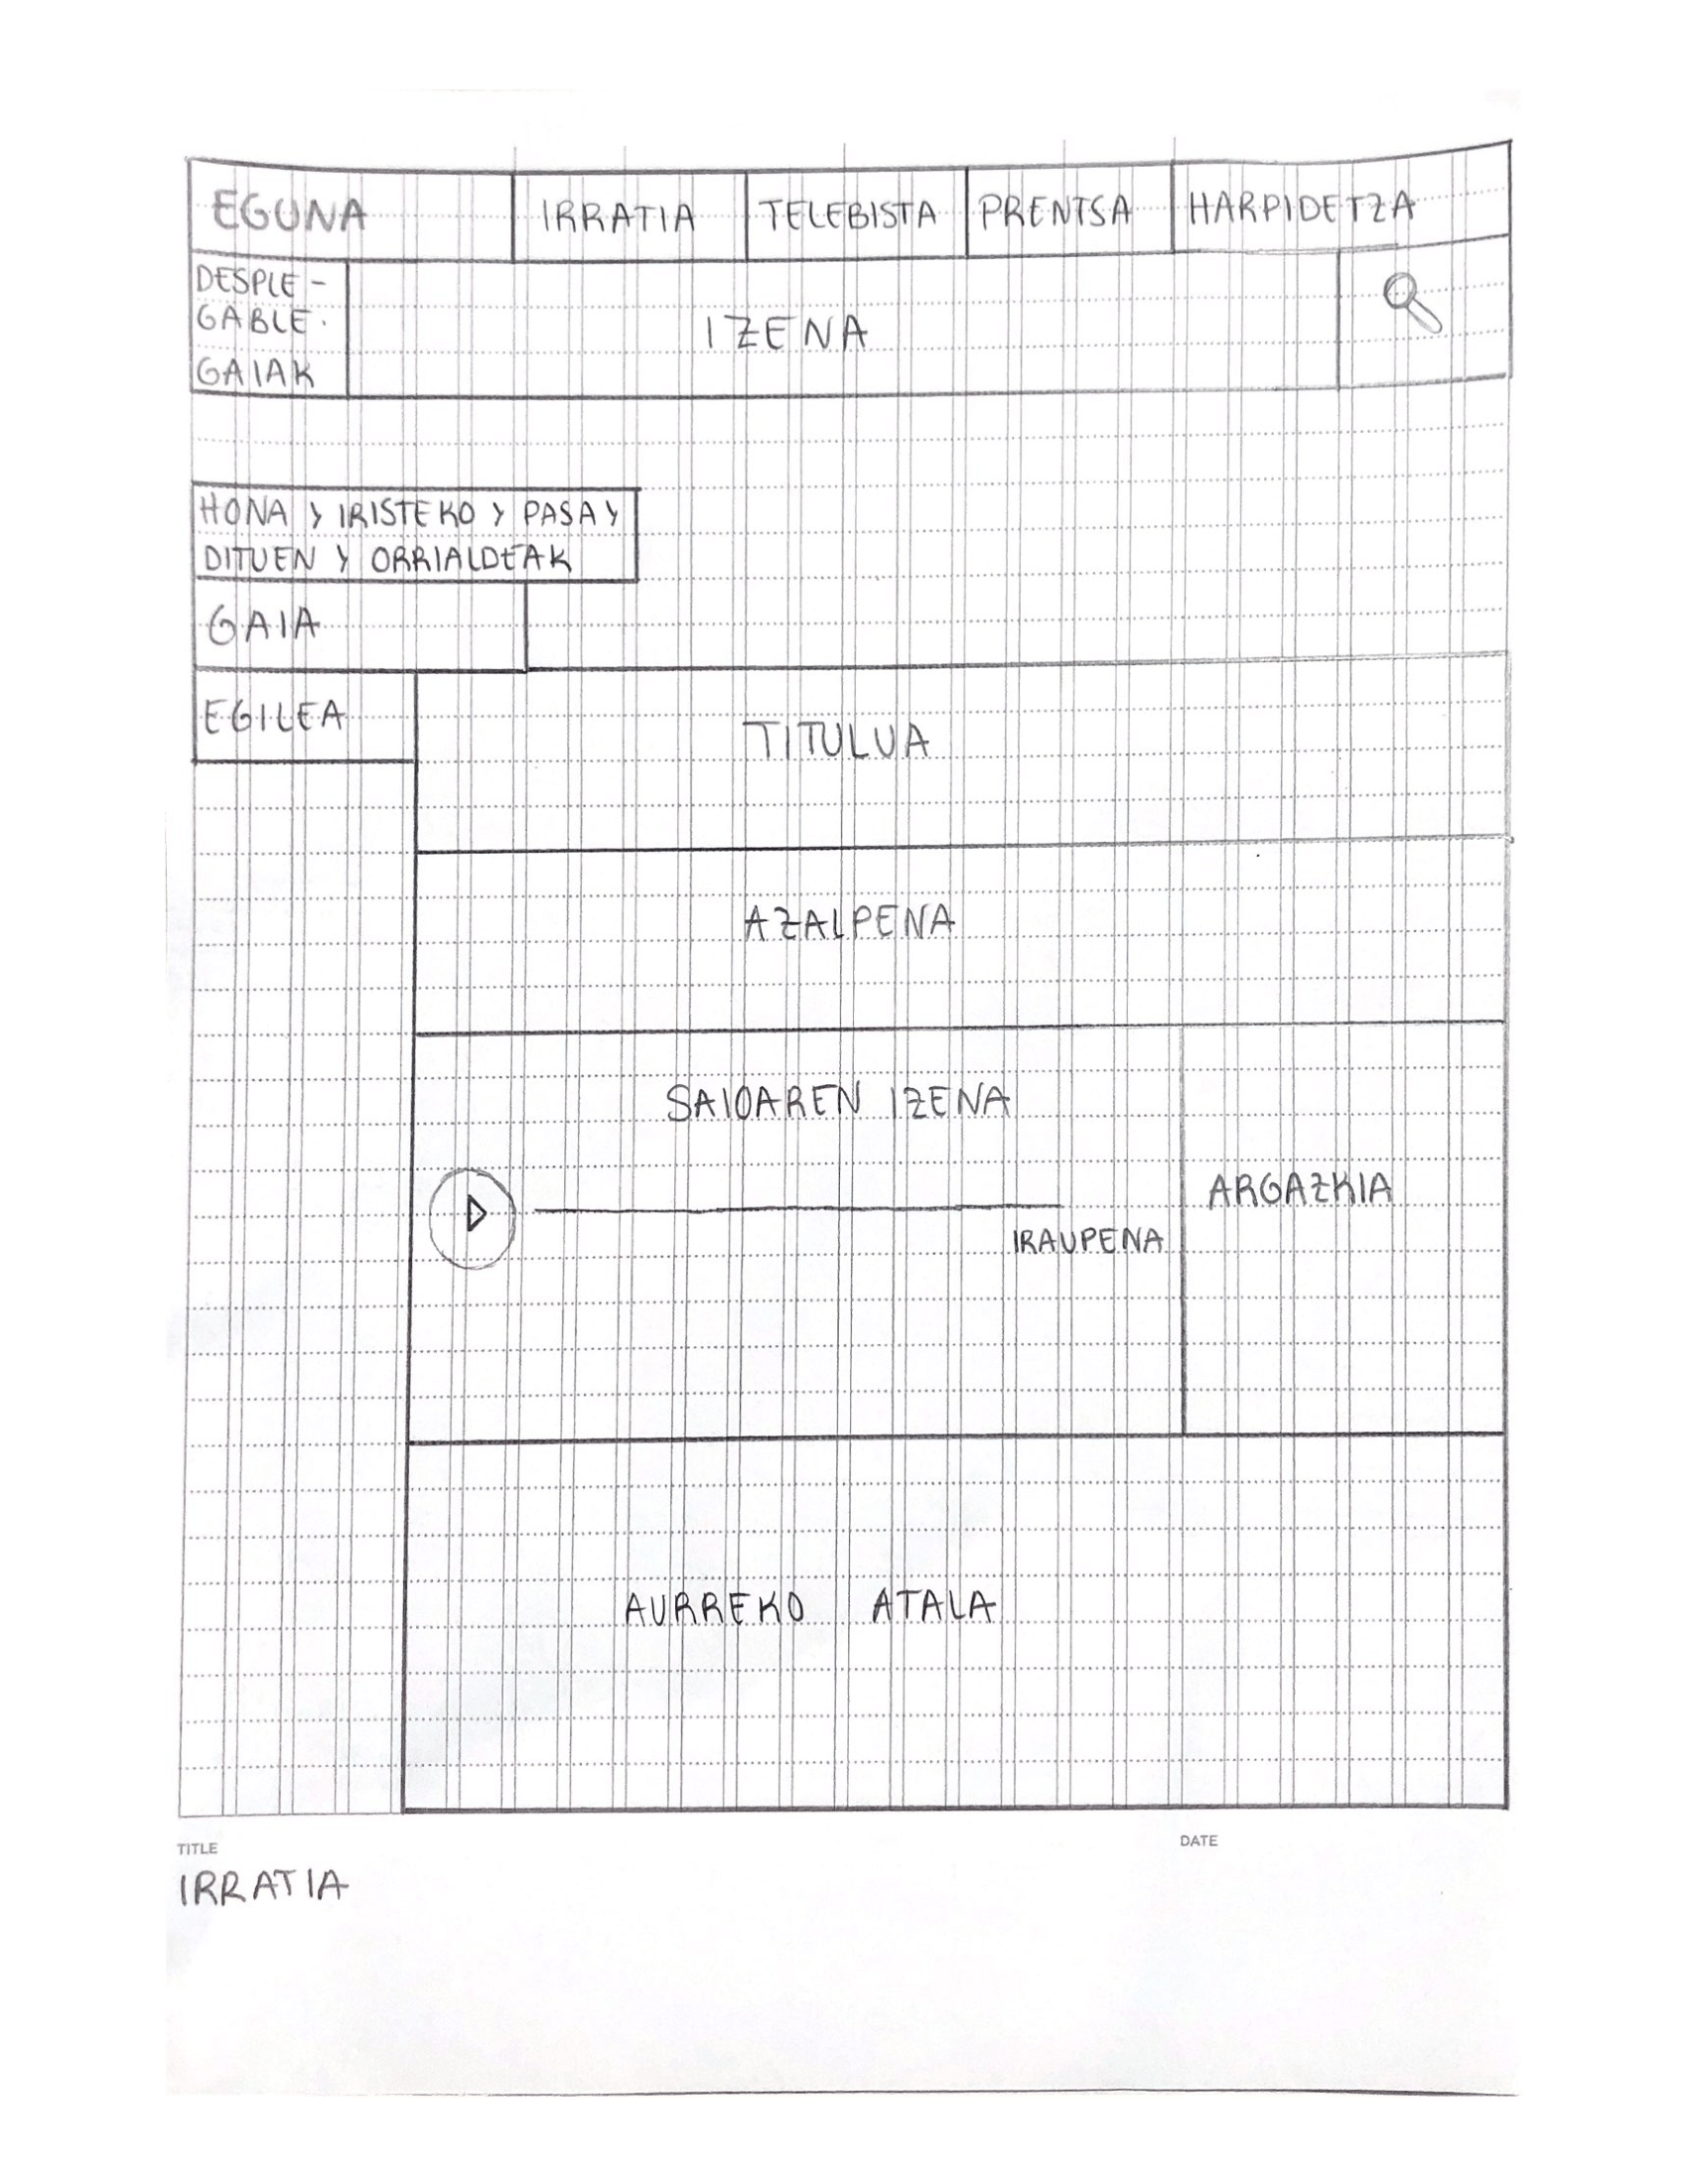 EGUNA IRRATIA TELEBISTA PRENTSA HARPIDETZA
DESPLE-
GABLE.
GAIAK
IZENA
HONA > IRISTEKO > PASA >
DITUEN > ORRIALDEAK
GAIA
EGILEA
TITULUA
AZALPENA
SAIOAREN IZENA
ARGAZKIA
IRAUPENA
AURREKO ATALA
TITLE
DATE
IRRATIA